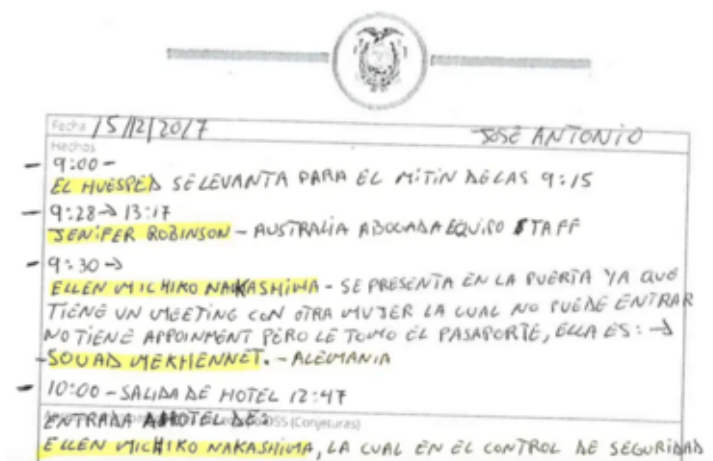 Fecha 15/12/2017 JOSÉ ANTONIO
Hechos
- 9:00 -
EL HUESPED SE LEVANTA PARA EL MITIN DE LAS 9:15
- 9:28 → 13:17
JENIFER ROBINSON - AUSTRALIA ABOGADA EQUIPO STAFF
- 9:30 →
ELLEN MICHIKO NAKASHIMA - SE PRESENTA EN LA PUERTA YA QUE
TIENE UN MEETING CON OTRA MUJER LA CUAL NO PUEDE ENTRAR
NO TIENE APPOINMENT PERO LE TOMO EL PASAPORTE, ELLA ES: →
- SOUAD MEKHENNET. - ALEMANIA
- 10:00 - SALIDA DE HOTEL 12:47
ENTRADA A HOTEL DE: (Conjeturas)
ELLEN MICHIKO NAKASHIMA, LA CUAL EN EL CONTROL DE SEGURIDAD